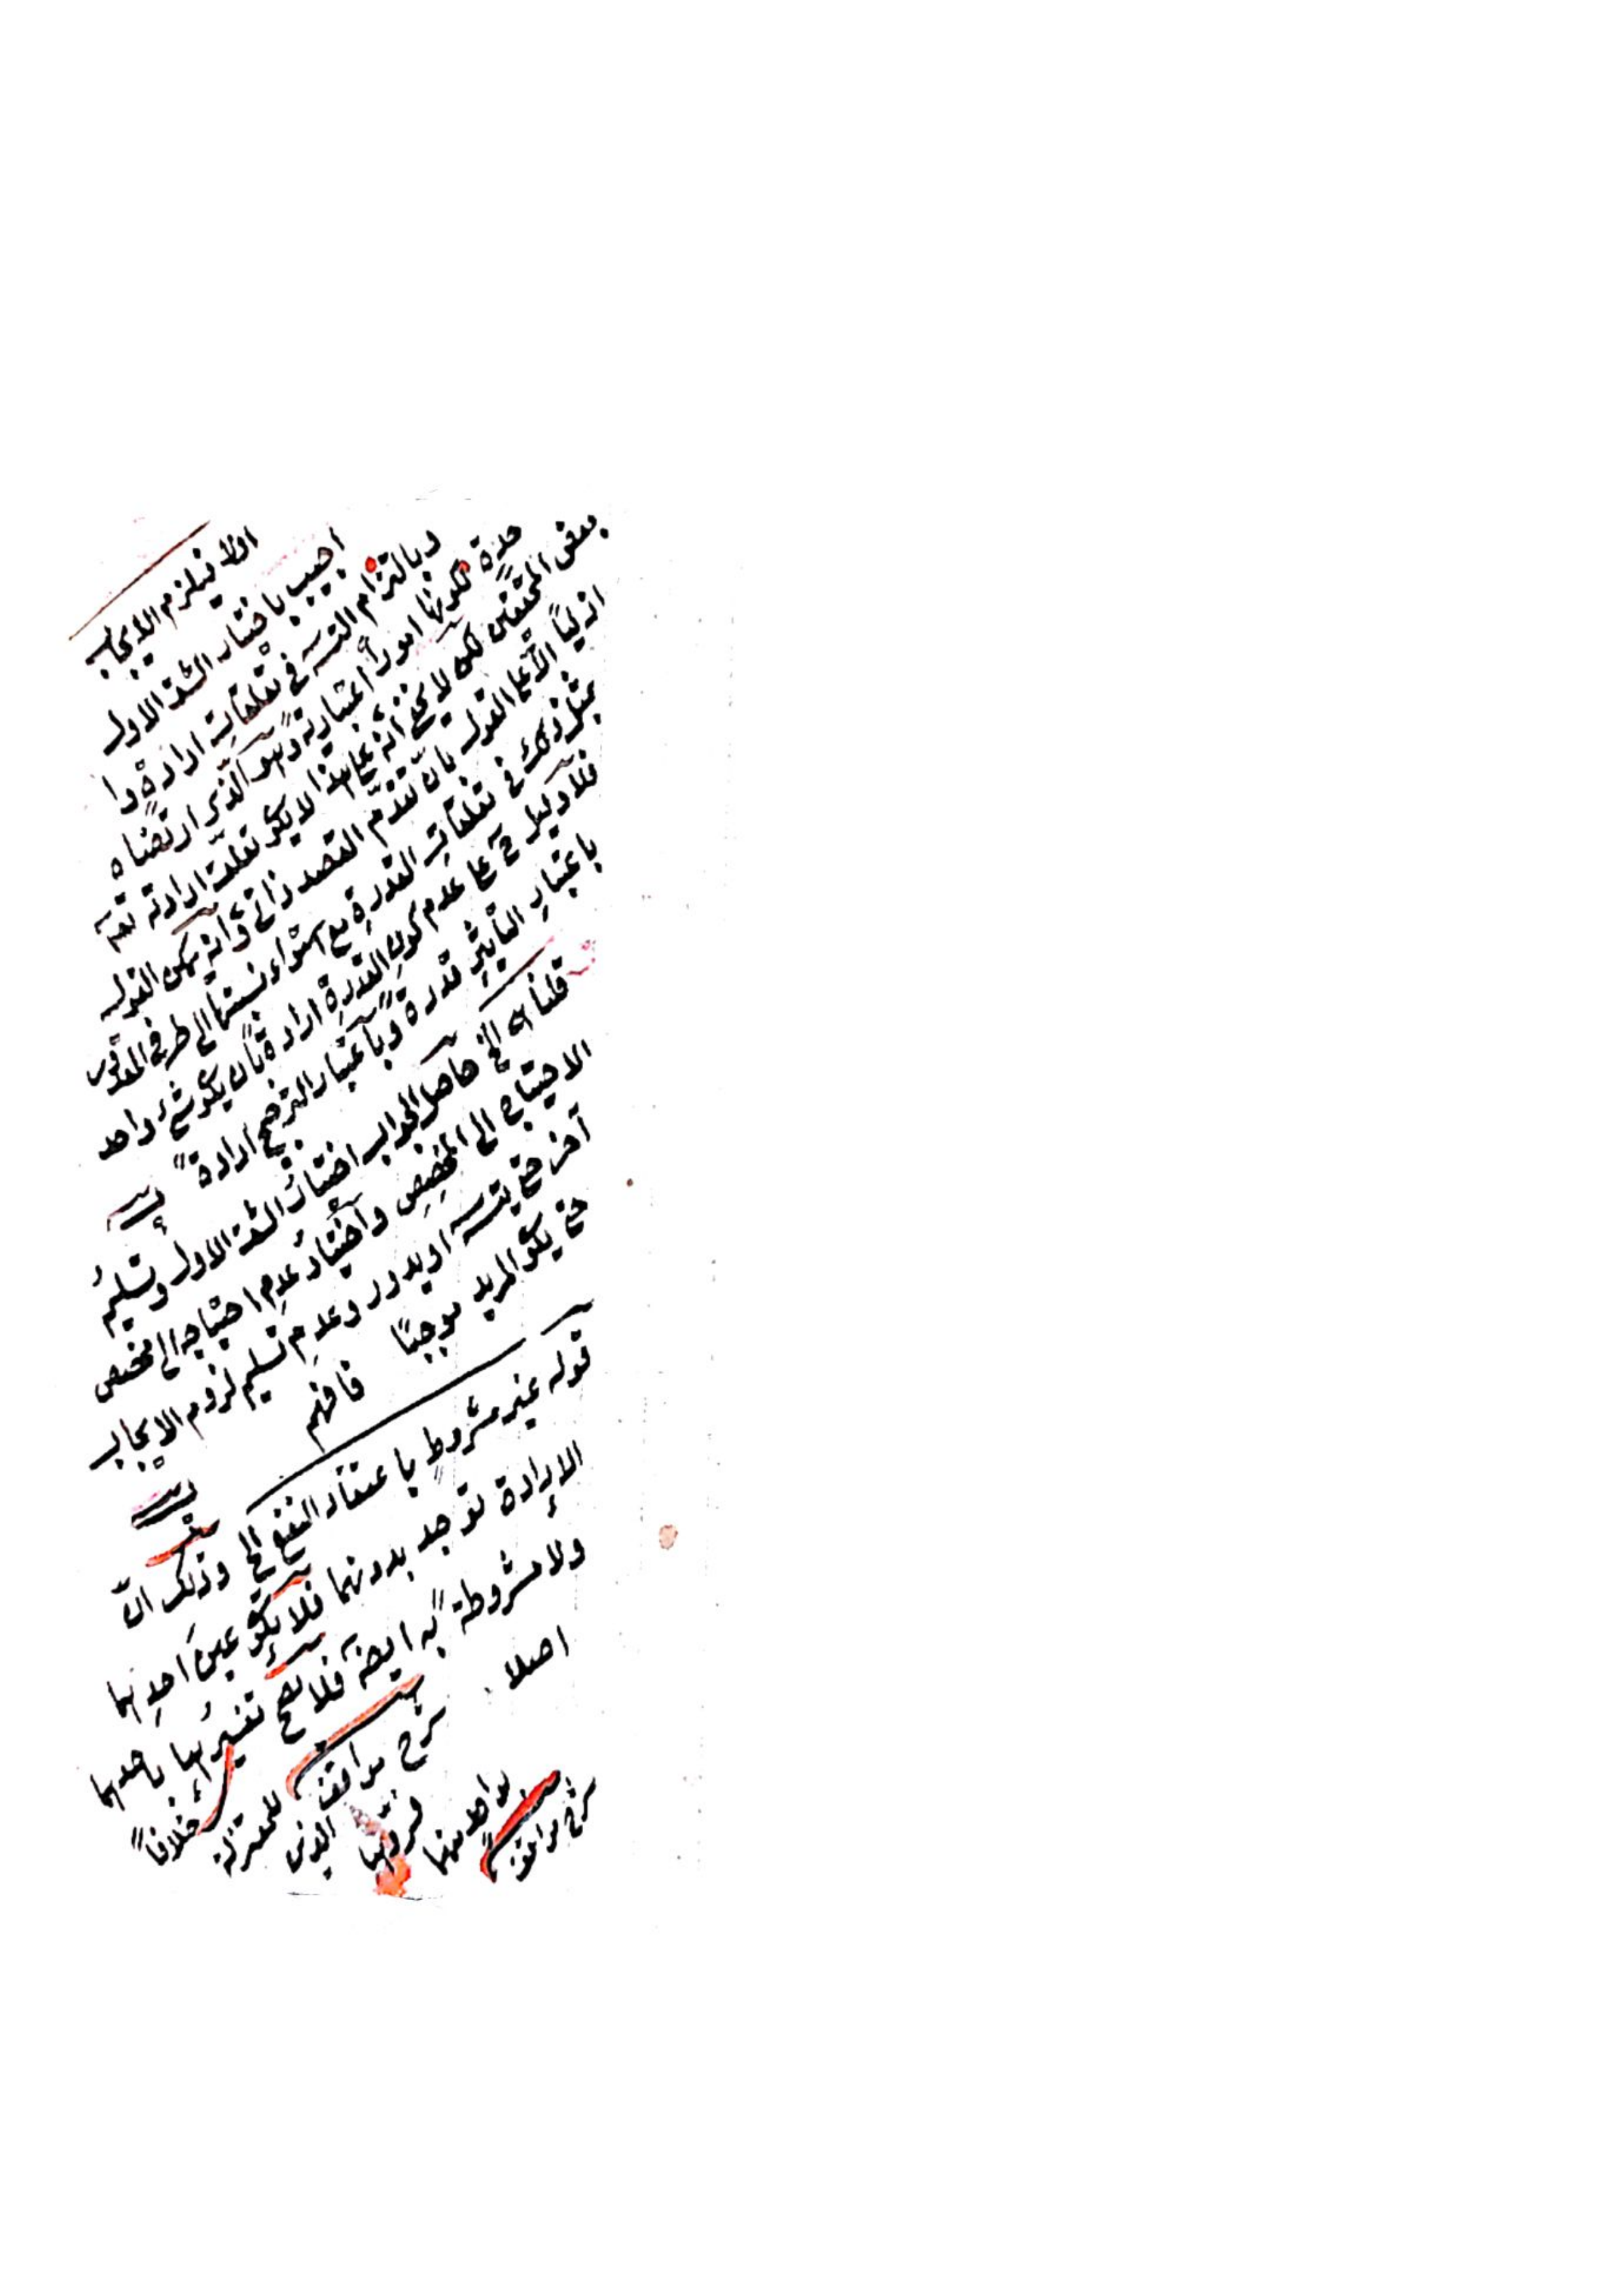 اولا فيلزم الايجاب
اجيب باختيار الشق الاول
وبالتزام التسـ في تعلقات ارادة وا
حدة لكونها امورا اعتبارية وهو الذى ارتضاه
بعض المحققين لكن لا يخفى أنه على هذا لا يكو تعلق ارادته تعـ
ازليا الا على القول بان تقدم القصد ذاتى وأنه يمكن القول
بمثل ذلك في تعلقات القدرة مع استواء نسبتها الى طرفى المقدور
فلا دليل ح على عدم كون القدرة ارادة بان يكو شئ واحد
باعتبار التأثير قدرة وباعتبار الترجيح ارادة
قلنا اه الخ حاصل الجواب اختيار الشق الاول وتسليم
الاحتياج الى المخصص واختيار عدم احتياجه الى مخصص
آخر حتى يتسـ او يدور وعدم تسليم لزوم الايجاب
حتى يكو المريد موجبا فافهم
قوله غير مشروط باعتقاد النفع الخ وذلك ان
الارادة توجد بدونهما فلا يكو عين احدهما
ولا مشروطة به ايضـ فلا يصح تفسيرها باحدهما
اصلا شرح مواقف
خلافا
للمعتزلة
الذين
فسروها
بواحد منهما
شرح مواقف